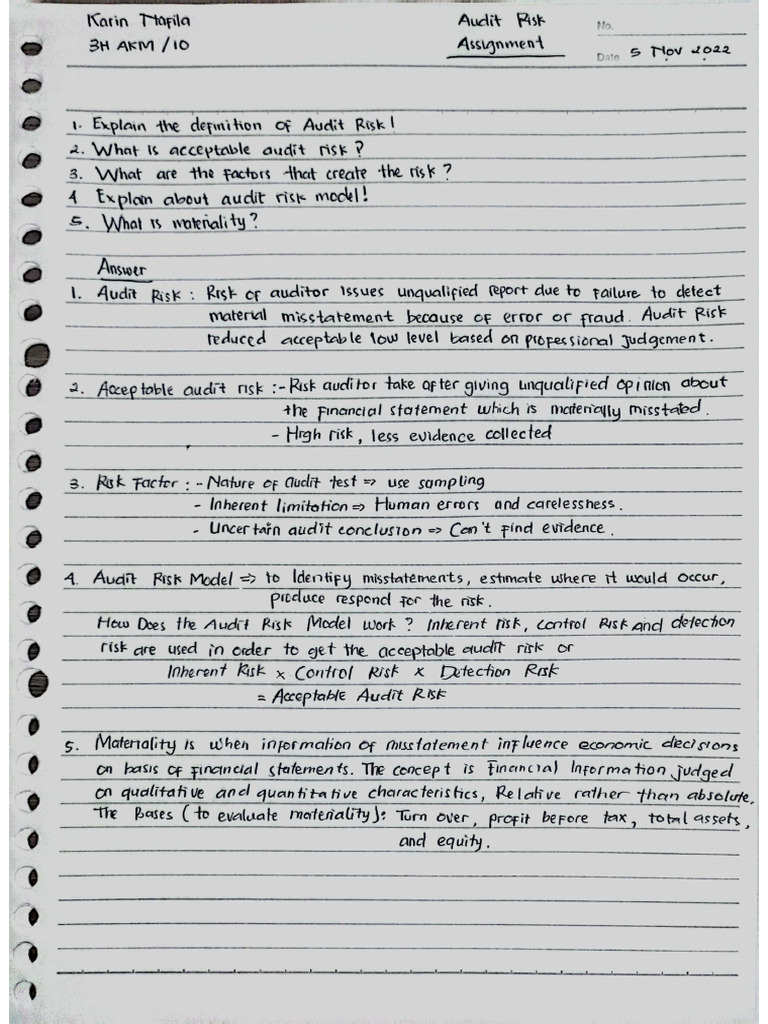 Karin Nafila
Audit Risk
No.
3H AKM / 10
Assignment
Date 5 Nov 2022
1. Explain the definition of Audit Risk!
2. What is acceptable audit risk?
3. What are the factors that create the risk?
4 Explain about audit risk model!
5. What is materiality?
Answer
1. Audit Risk : Risk of auditor issues unqualified report due to failure to detect
material misstatement because of error or fraud. Audit Risk
reduced acceptable low level based on professional judgement.
2. Acceptable audit risk : - Risk auditor take after giving unqualified opinion about
the financial statement which is materially misstated.
- High risk, less evidence collected
3. Risk Factor : - Nature of audit test => use sampling
- Inherent limitation => Human errors and carelessness.
- Uncertain audit conclusion => Can't find evidence.
4. Audit Risk Model => to Identify misstatements, estimate where it would occur,
produce respond for the risk.
How Does the Audit Risk Model Work? Inherent risk, control Risk and detection
risk are used in order to get the acceptable audit risk or
Inherent Risk x Control Risk x Detection Risk
= Acceptable Audit Risk
5. Materiality is when information of misstatement influence economic decisions
on basis of financial statements. The concept is Financial Information judged
on qualitative and quantitative characteristics, Relative rather than absolute.
The Bases (to evaluate materiality): Turn over, profit before tax, total assets,
and equity.